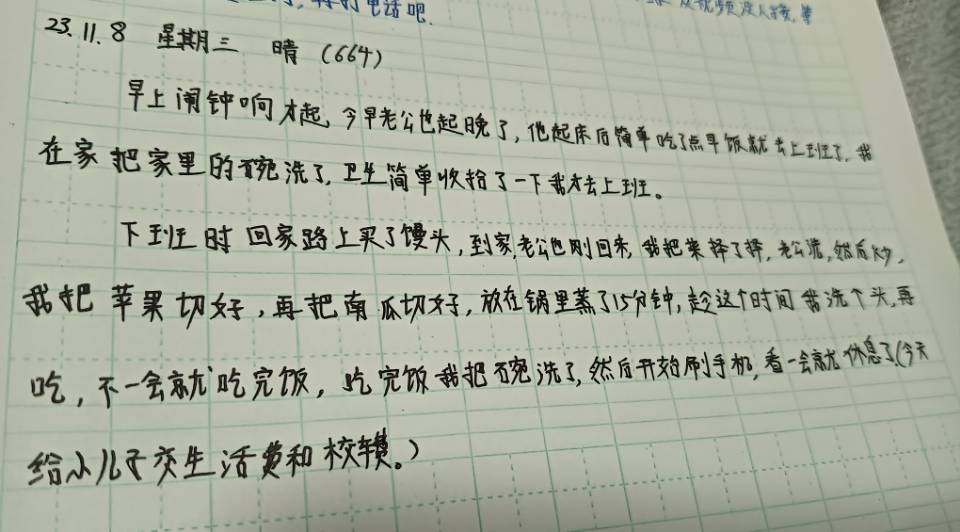 再打电话吧.
23.11.8 星期三 晴 (664)
早上闹钟响才起, 今早老公也起晚了, 他起床后简单吃了点早饭就去上班了. 我
在家把家里的碗洗了, 卫生简单收拾了一下我才去上班。
下班时回家路上买了馒头, 到家, 老公也刚回来, 我把菜择了择, 老公洗, 然后炒,
我把苹果切好, 再把南瓜切好, 放在锅里蒸了15分钟, 趁这个时间我洗个头, 再
吃, 不一会就吃完饭, 吃完饭我把碗洗了, 然后开始刷手机, 看一会就休息了.(今天
给小儿子交生活费和校车费。)